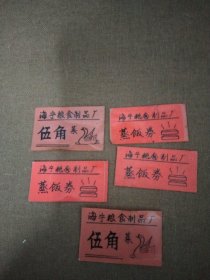 海宁粮食制品厂
伍角 菜
海宁粮食制品厂
蒸饭券
海宁粮食制品厂
蒸饭券
海宁粮食制品厂
蒸饭券
海宁粮食制品厂
伍角 菜